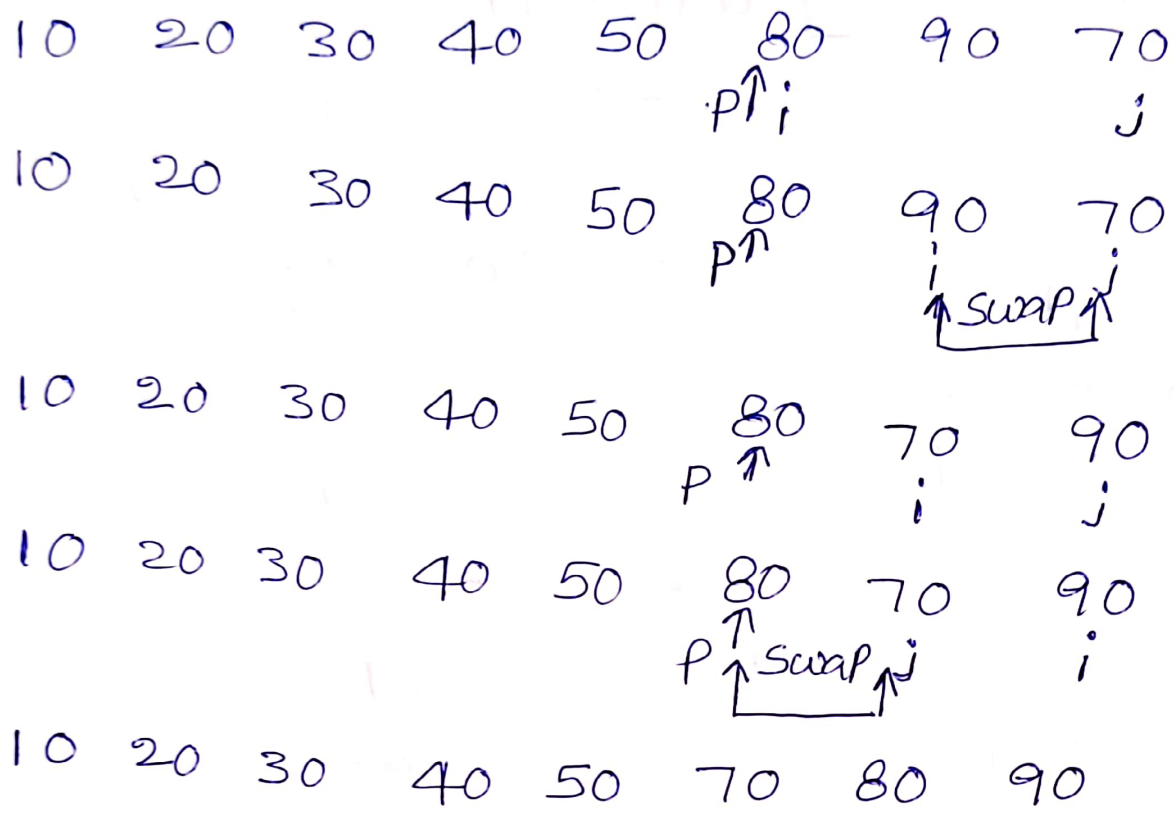 10 20 30 40 50 80 90 70
P i j
10 20 30 40 50 80 90 70
P i j
swap
10 20 30 40 50 80 70 90
P i j
10 20 30 40 50 80 70 90
P swap j i
10 20 30 40 50 70 80 90